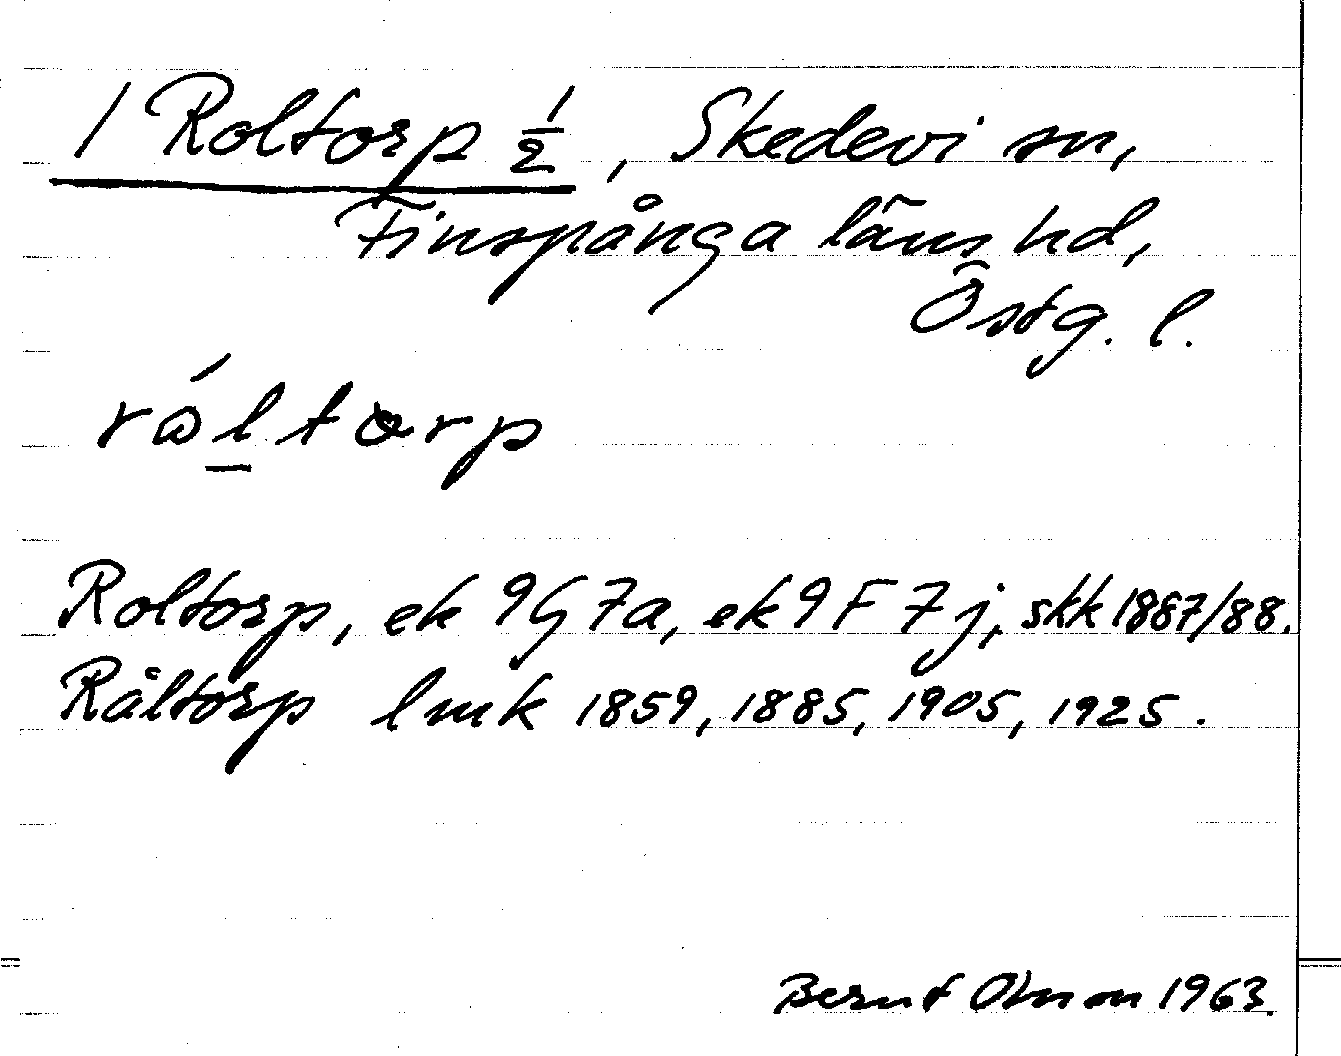 1 Roltorp ½, Skedevi sn,
Finspånga läns hd,
Östg. l.
Roltorp, ek 9G7a, ek 9F7j, skk 1887/88.
Råltorp lmk 1859, 1885, 1905, 1925.
Bernt Olsson 1963.